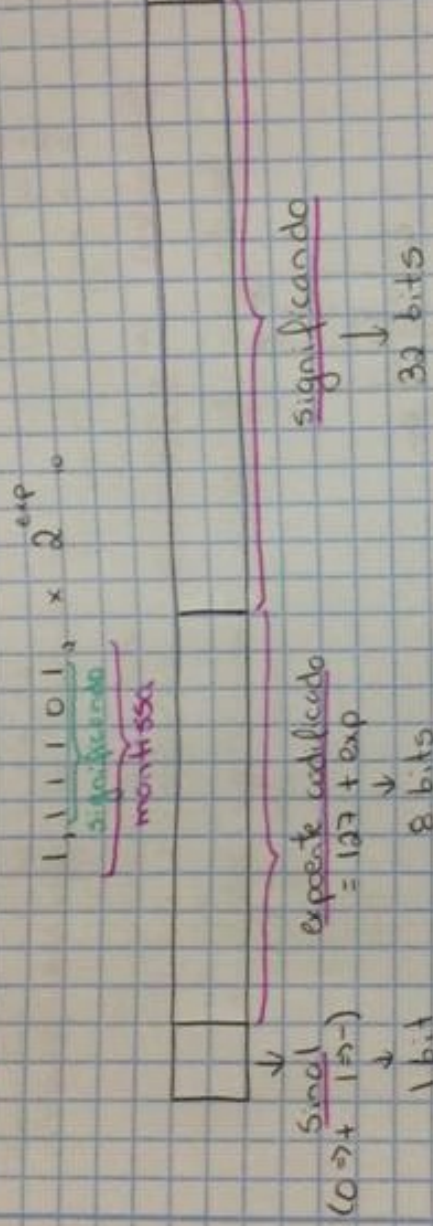 1,11101₂ x 2^exp ₁₀
significando
mantissa
Sinal
(0 => + 1 => -)
↓
1 bit
expoente codificado
= 127 + exp
↓
8 bits
significando
↓
32 bits